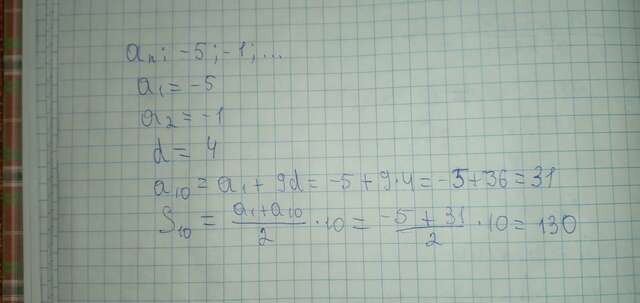 aₙ; -5; -1; ...
a₁ = -5
a₂ = -1
d = 4
a₁₀ = a₁ + 9d = -5 + 9·4 = -5+36 = 31
S₁₀ = (a₁+a₁₀)/2 · 10 = (-5 + 31)/2 · 10 = 130